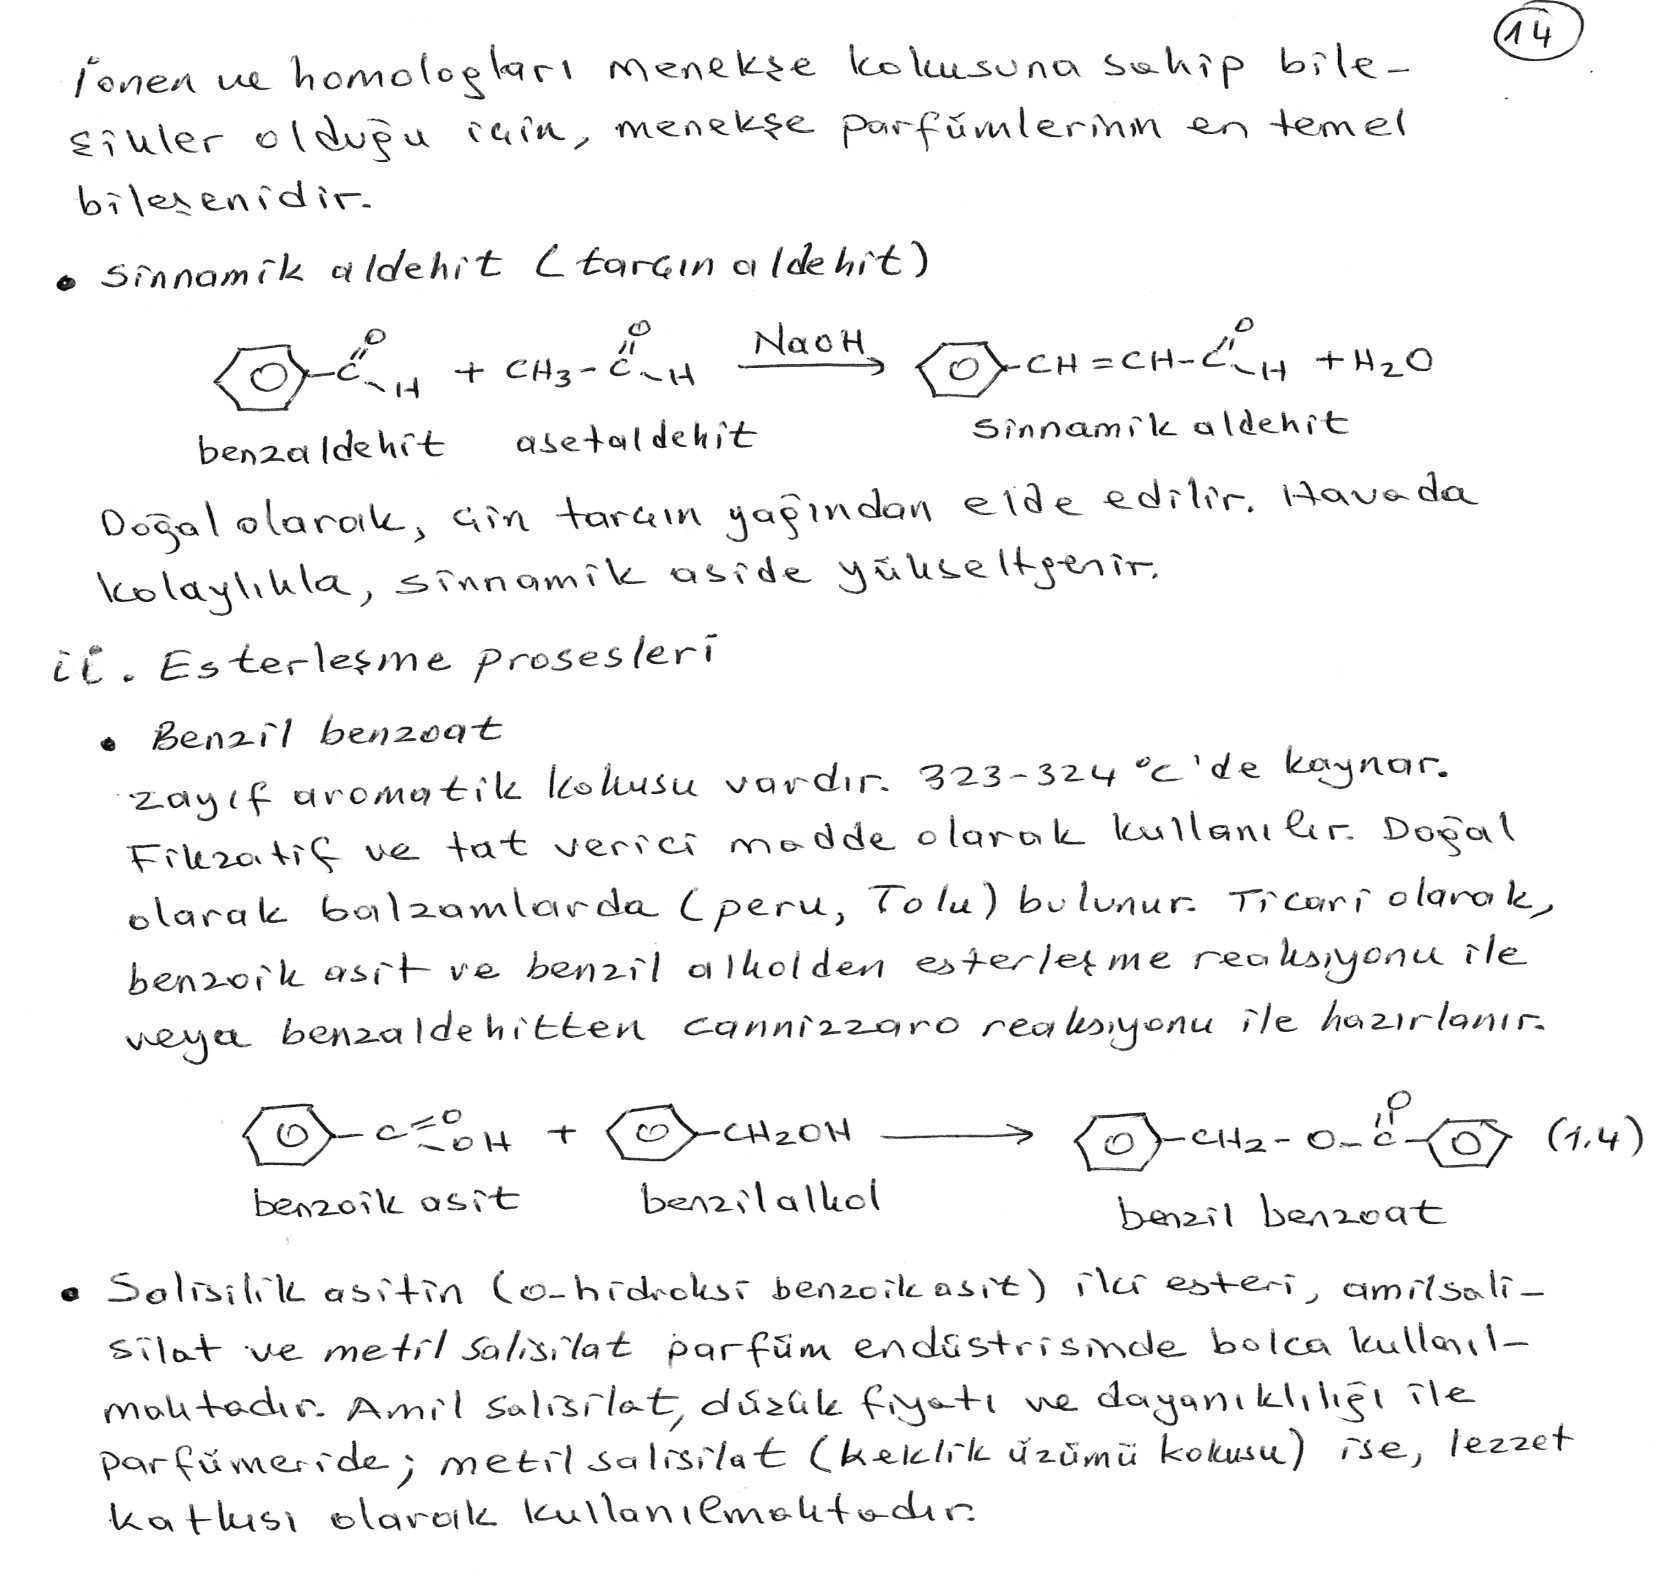 14
İonen ve homologları menekşe kokusuna sahip bile-
şikler olduğu için, menekşe parfümlerinin en temel
bileşenidir.
• Sinnamik aldehit (tarçın aldehit)
C=O H + CH3-C=O H NaOH → CH=CH-C=O H + H2O
benzaldehit asetaldehit sinnamik aldehit
Doğal olarak, çin tarçın yağından elde edilir. Havada
kolaylıkla, sinnamik aside yükseltgenir.
ii. Esterleşme prosesleri
• Benzil benzoat
zayıf aromatik kokusu vardır. 323-324 °C'de kaynar.
Fikzatif ve tat verici madde olarak kullanılır. Doğal
olarak balzamlarda (peru, Tolu) bulunur. Ticari olarak,
benzoik asit ve benzil alkolden esterleşme reaksiyonu ile
veya benzaldehitten cannizzaro reaksiyonu ile hazırlanır.
C=O OH + CH2OH → CH2-O-C=O (1.4)
benzoik asit benzil alkol benzil benzoat
• Salisilik asitin (o-hidroksi benzoik asit) iki esteri, amilsali-
silat ve metil salisilat parfüm endüstrisinde bolca kullanıl-
maktadır. Amil salisilat, düşük fiyatı ve dayanıklılığı ile
parfümeride; metil salisilat (keklik üzümü kokusu) ise, lezzet
katkısı olarak kullanılmaktadır.